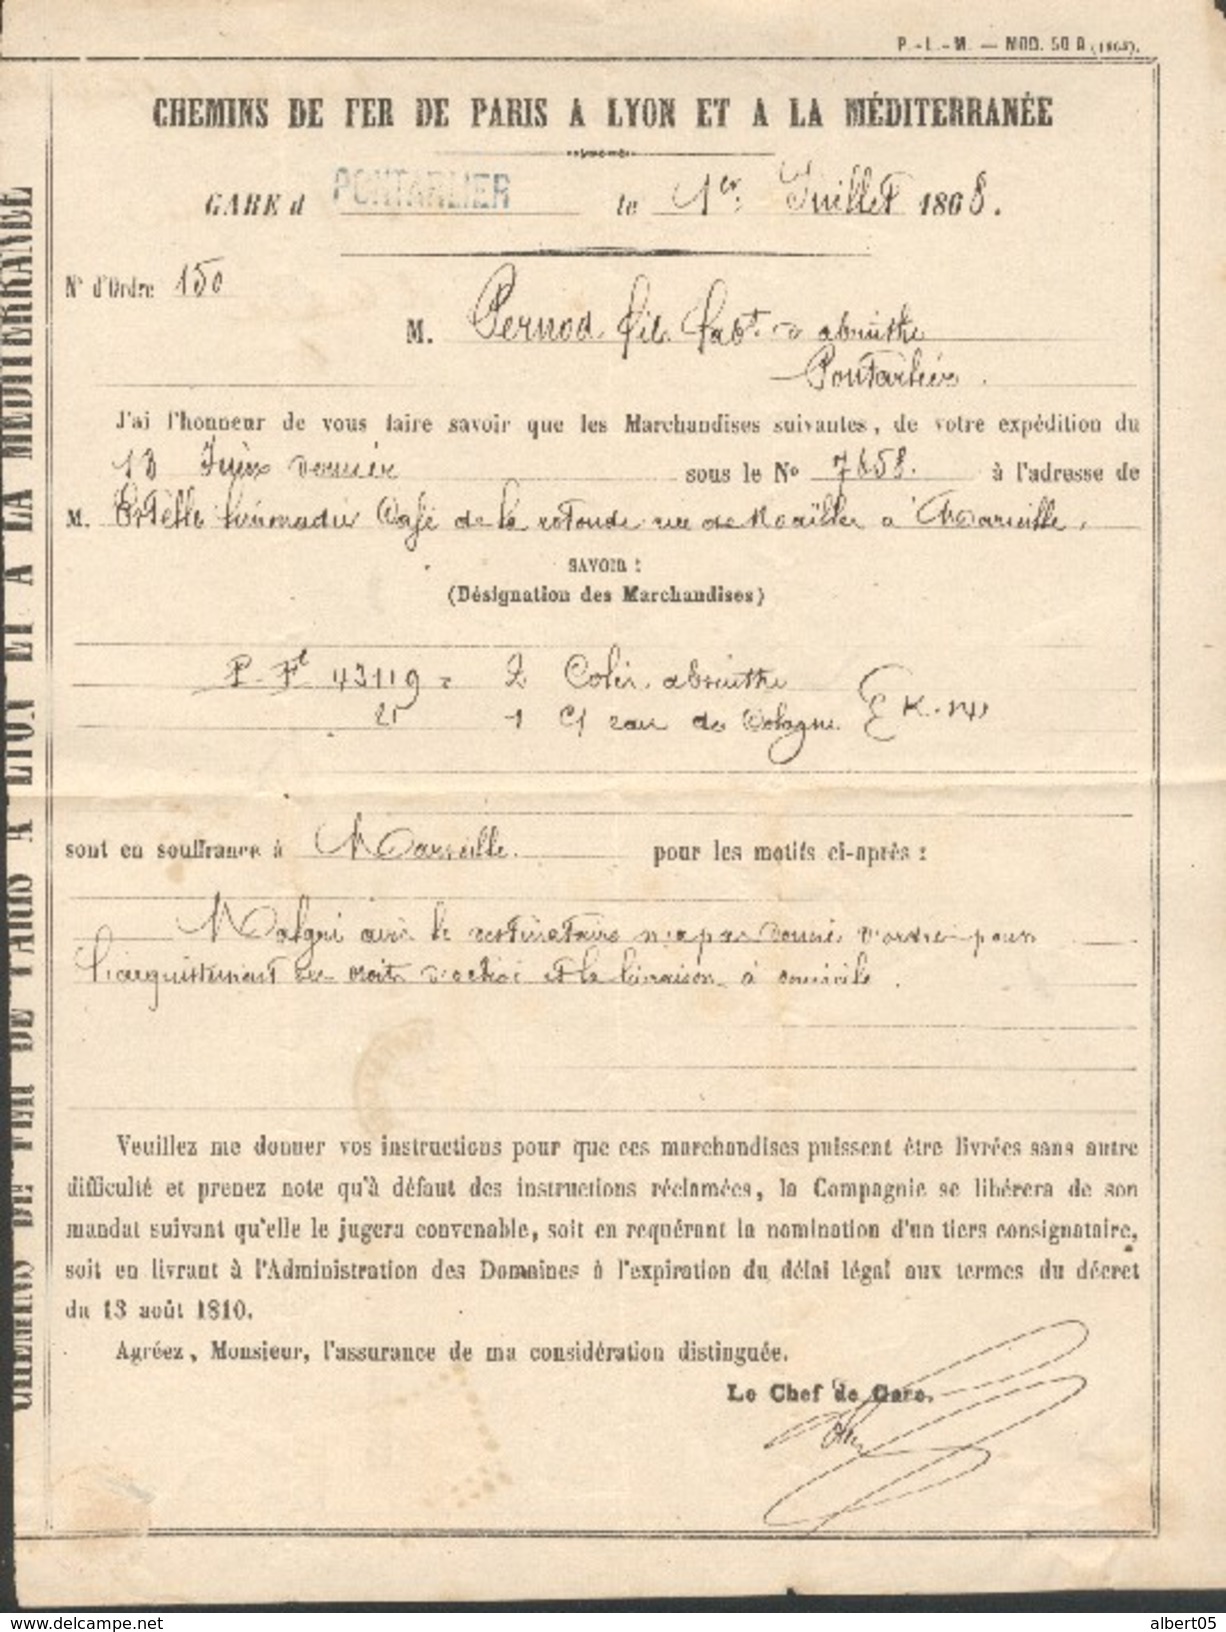 P.-L.-M. — MOD. 50 A (1868).
CHEMINS DE FER DE PARIS A LYON ET A LA MÉDITERRANÉE
GARE d PONTARLIER le 1er Juillet 1868.
N° d'Ordre 150
M. Pernod fils fabt d'absinthe
Pontarlier.
J'ai l'honneur de vous faire savoir que les Marchandises suivantes, de votre expédition du
13 Juin dernier sous le N° 7658. à l'adresse de
M. Café de la rotonde rue de Noailles à Marseille.
SAVOIR :
(Désignation des Marchandises)
P. F. 43119 = 2 Colis absinthe
1 eau de Cologne
sont en souffrance à Marseille. pour les motifs ci-après :
Malgré avis le destinataire n'a pas donné d'ordre pour
l'acquittement des droits d'octroi et la livraison à domicile.
Veuillez me donner vos instructions pour que ces marchandises puissent être livrées sans autre
difficulté et prenez note qu'à défaut des instructions réclamées, la Compagnie se libérera de son
mandat suivant qu'elle le jugera convenable, soit en requérant la nomination d'un tiers consignataire,
soit en livrant à l'Administration des Domaines à l'expiration du délai légal aux termes du décret
du 13 août 1810.
Agréez, Monsieur, l'assurance de ma considération distinguée.
Le Chef de Gare.
CHEMINS DE FER DE PARIS A LYON ET A LA MÉDITERRANÉE
www.delcampe.net
albert05